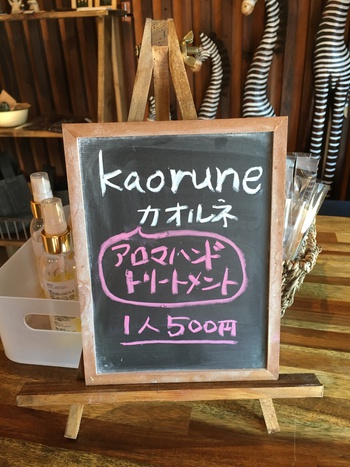 kaorune
カオルネ
アロマハンド
トリートメント
1人500円